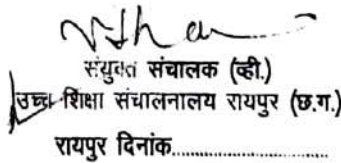 संयुक्त संचालक (व्ही.)
उच्च शिक्षा संचालनालय रायपुर (छ.ग.)
रायपुर दिनांक....................